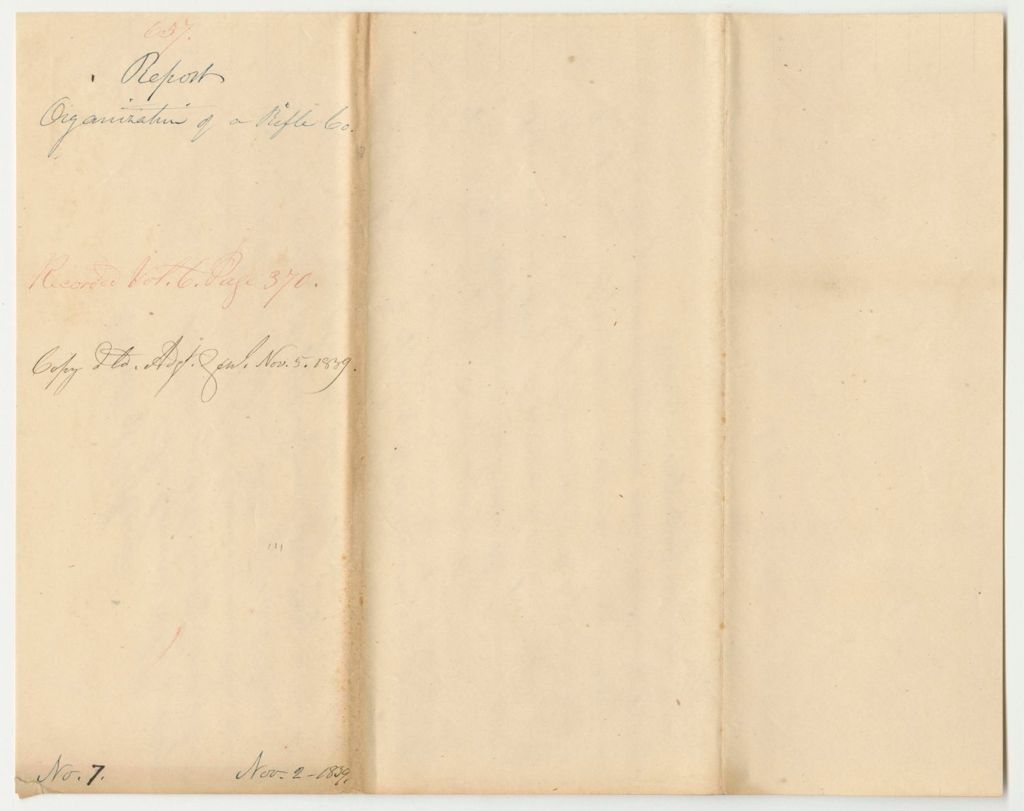 637.
Report
Organization of a Rifle Co.
Recorded Vol. 6. Page 370.
Copy Dld. Adjt. Genl. Nov. 5. 1839.
No. 7.
Nov. 2 - 1839.